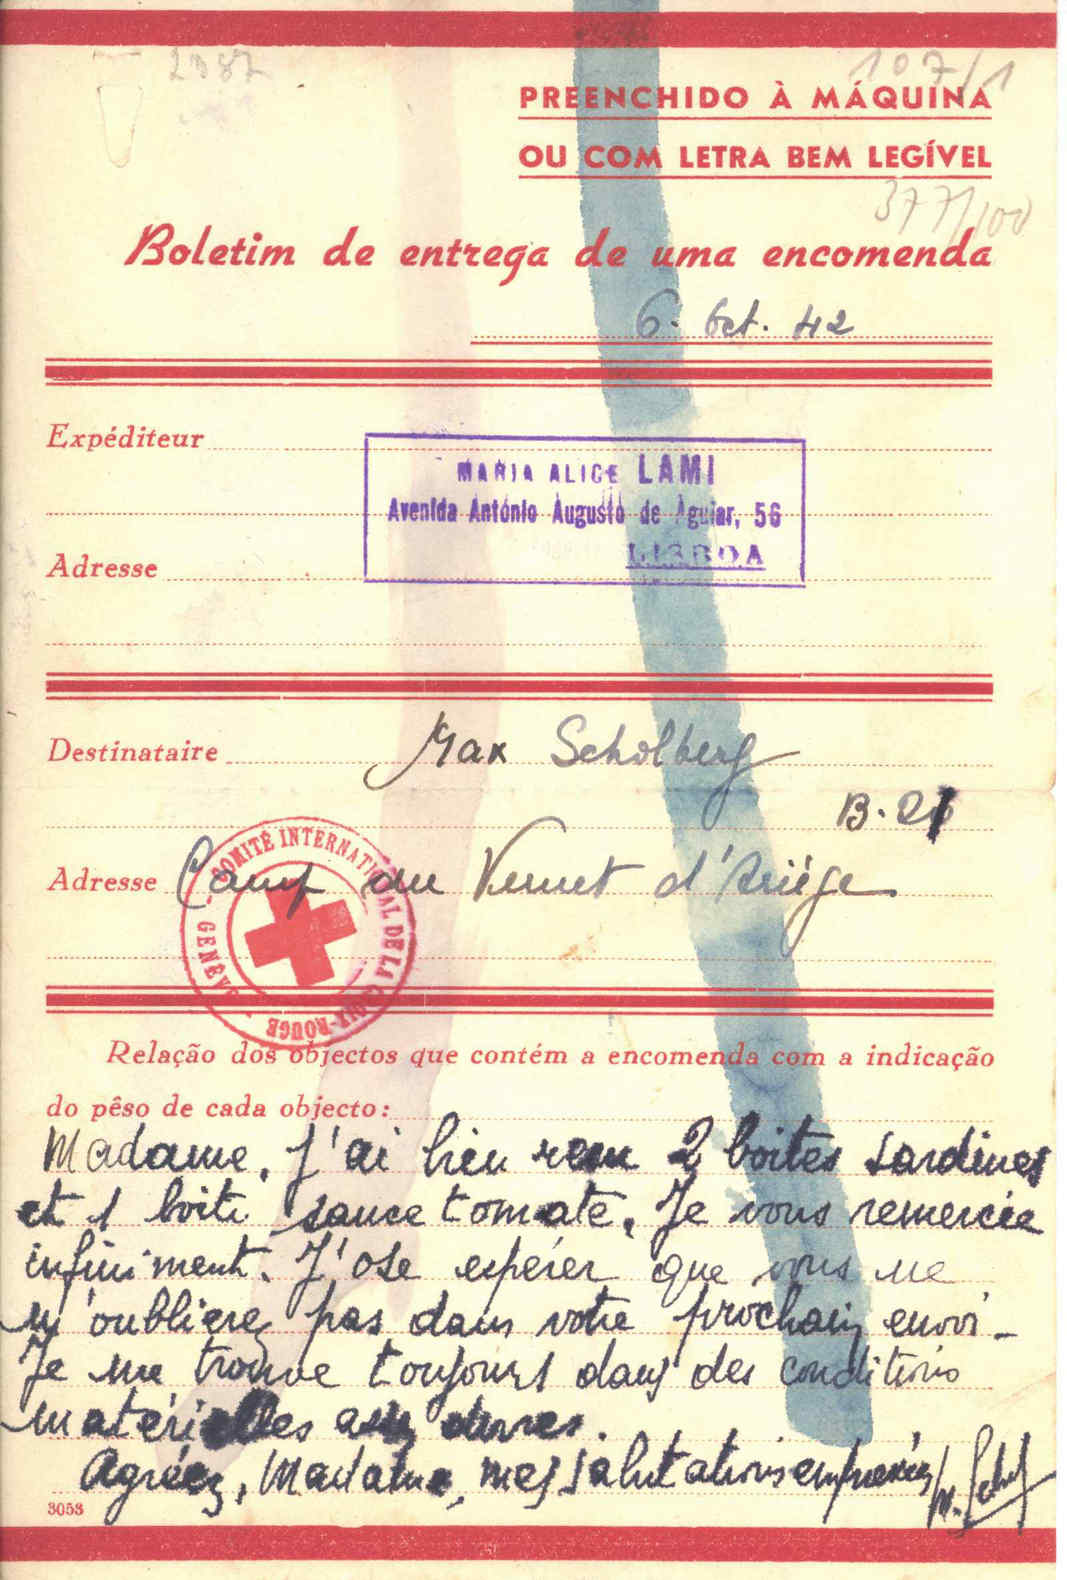 2387
107/1
PREENCHIDO À MÁQUINA
OU COM LETRA BEM LEGÍVEL
377/100
Boletim de entrega de uma encomenda
6. Oct. 42
Expéditeur
MARIA ALICE LAMI
Avenida António Augusto de Aguiar, 56
LISBOA
Adresse
Destinataire Max Scholberg
B. 21
Adresse Camp du Vernet d'Ariège
COMITÉ INTERNATIONAL DE LA CROIX-ROUGE - GENÈVE -
Relação dos objectos que contém a encomenda com a indicação
do pêso de cada objecto:
Madame, J'ai bien reçu 2 boites sardines
et 1 boite sauce tomate. Je vous remercie
infiniment. J'ose espérer que vous ne
m'oublierez pas dans votre prochain envoi -
Je me trouve toujours dans des conditions
matérielles assez dures.
Agréez, Madame, mes salutations empressées
3053